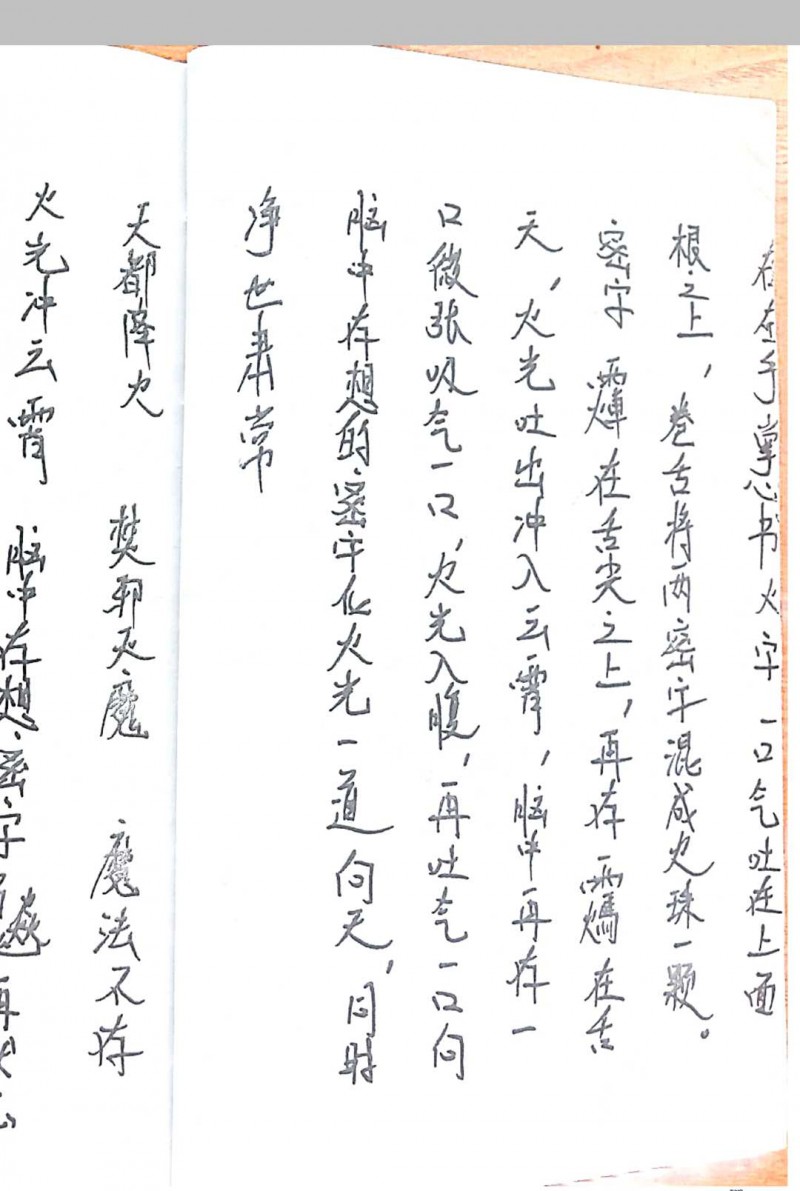 火光冲云霄 脑中存想密字 再
天都降火 焚邪灭魔 魔法不存
净世肃常
脑中存想的密字化火光一道向天，同时
口微张吸气一口，火光入腹，再吐气一口向
天，火光吐出冲入云霄，脑中再存一
密字 在舌尖之上，再存 在舌
根之上，卷舌将两密字混成火珠一颗。
在左手掌心书火字一口气吐在上面